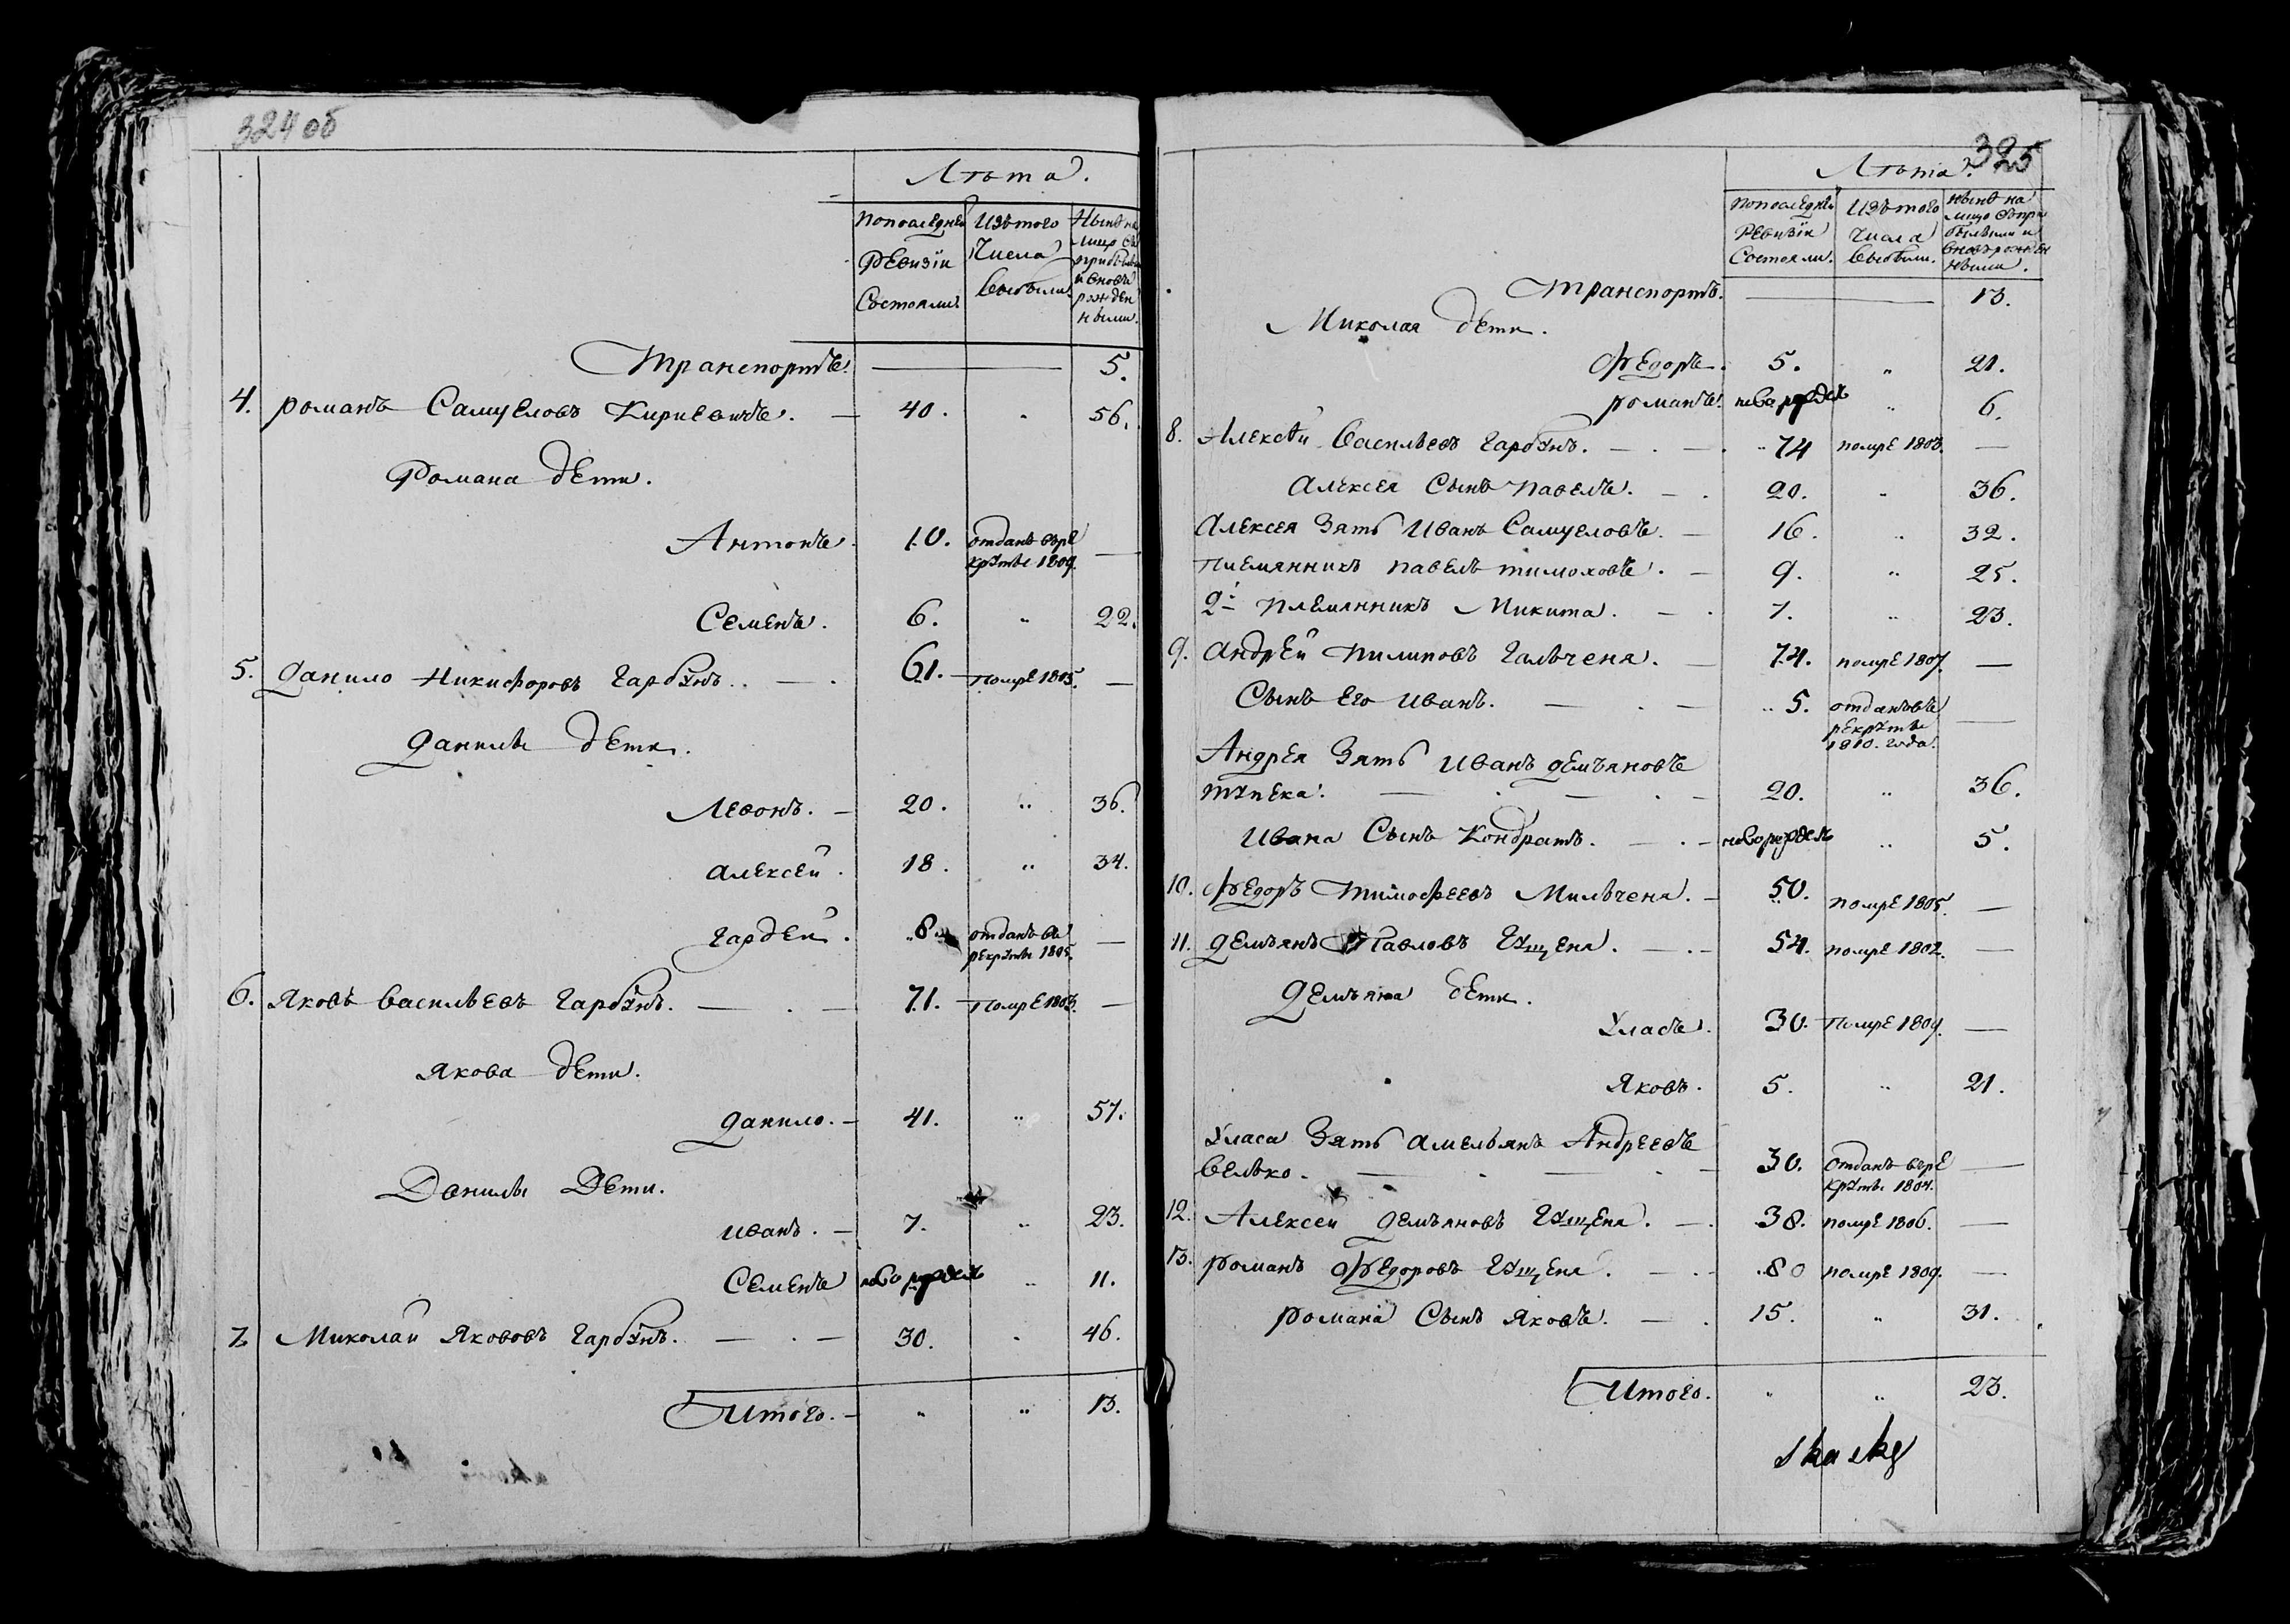 324 об
Лѣта.
попоследней ревизіи состояли. Изътого числа выбыли. Нынѣ на лицо съ прибылыми и вновь рожденными.
Транспортъ. — — 5.
4. романъ Самуеловъ Кириевичъ. — 40. „ 56.
Романа дети.
Антонъ. 10. отданъ въре крꙋты 1809. —
Семенъ. 6. „ 22.
5. Данило Никифоровъ Гарбꙋнъ. — 61. помре 1805. —
Данилы дети.
Левонъ. — 20. „ 36.
алексей. 18. „ 34.
гардей. 8. отданъ въ рекрꙋты 1805. —
6. Яковъ Васильевъ Гарбꙋнъ. — 71. помре 1803. —
Якова дети.
Данило. — 41. „ 57.
Данилы Дети.
иванъ. — 7. „ 23.
Семенъ новорожденъ „ 11.
7. Миколай Якововъ Гарбꙋнъ. — 30. „ 46.
Итого. — „ „ 13.
325
Лѣта.
попоследней ревизіи Состояли. Изътого числа выбыли. нынѣ на лицо съприбылыми и вновьрожденными.
Транспортъ. — 13.
Миколая дети.
Федоръ. 5. „ 21.
романъ. новорожденъ „ 6.
8. Алексѣй Васильевъ Гарбꙋнъ. — 74 помре 1803. —
Алексея Сынъ павелъ. — 20. „ 36.
Алексея Зять Иванъ Самуеловъ. — 16. „ 32.
племянникъ павелъ тимоховъ. — 9. „ 25.
2й племянникъ Микита. — 7. „ 23.
9. андрей пилиповъ Гальченя. — 74. помре 1807. —
Сынъ его иванъ. — 5. отданъвъ
рекрꙋты 1810. года. —
Андрея Зять иванъ демъяновъ
тꙋпека. — 20. „ 36.
Ивана Сынъ Кондратъ. — новорожденъ „ 5.
10. Федоръ тимофеевъ Мильченя. — 50. помре 1805. —
11. демъянъ Павловъ Гꙋщеня. — 54. помре 1802. —
Демъяна дети.
ꙋласъ. 30. помре 1809. —
Яковъ. 5. „ 21.
ꙋласа Зять амельянъ Андреевъ
велько. — 30. отданъ въре
крꙋты 1804. —
12. Алексей демъяновъ Гꙋщеня. — 38. помре 1806. —
13. романъ Федоровъ Гꙋщеня. — 80 помре 1809. —
романа Сынъ Яковъ. — 15. „ 31.
Итого. „ „ 23.